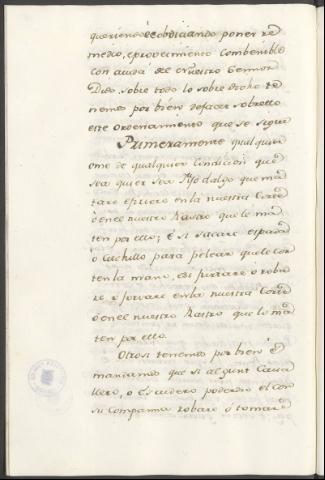 queriendo é cobdiciando poner re
medio, é proveimiento combenible
con aiuda de nuestro Sennor
Dios sobre todo lo sobre dicho te
nemos por bien de facer sobrello
este ordenamiento que se sigue
Primeramente qualquier
ome de qualquier condicion que
sea quier sea Fijodalgo que ma
tare é firiere en la nuestra Corte
ó en el nuestro Rastro que lo ma
ten por ello; é si sacare espada
ó Cuchillo para pelear quele cor
ten la mano, é si furtare ó roba
re ó forzare en la nuestra Corte
ó en el nuestro Rastro que lo ma
ten por ello.
Otrosi tenemos por bien é
mandamos que si algunt Cava
llero, ó Escudero poderoso el con
su Companna robare ó tomare